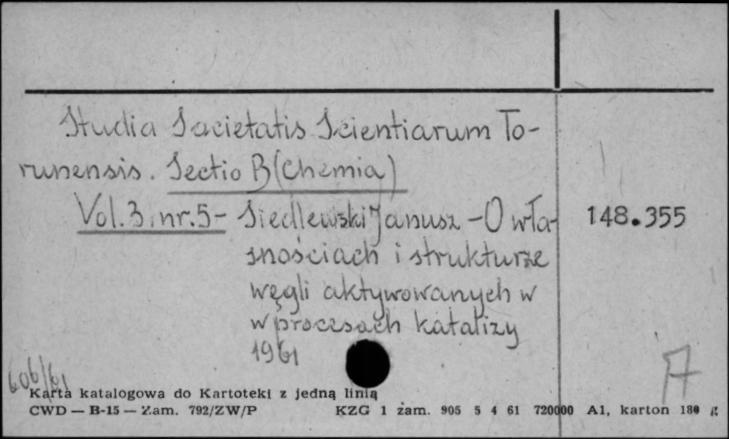 Studia Societatis Scientiarum To-
runensis. Sectio B (Chemia)
Vol. 3, nr. 5 - Siedlewski Janusz - O wła- 148.355
snościach i strukturze
węgli aktywowanych w
w procesach katalizy
1961
606/61
Karta katalogowa do Kartoteki z jedną linią
CWD — B-15 — Zam. 792/ZW/P KZG 1 zam. 905 5 4 61 720000 A1, karton 180 g